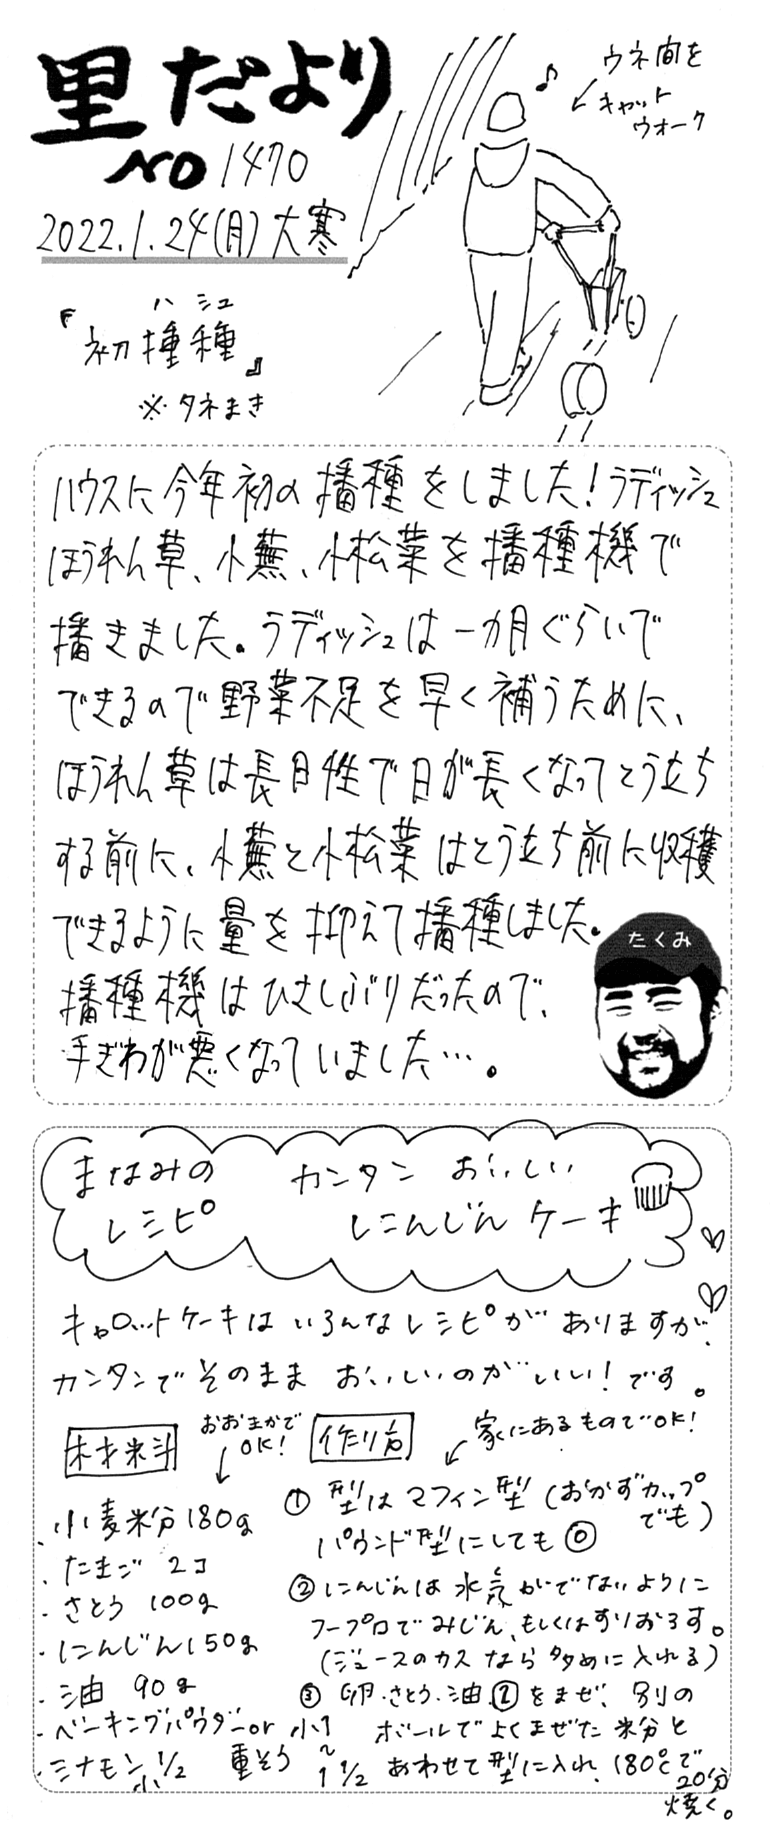 里だより
NO 1470
2022.1.24(月)大寒
ウネ間を
キャット
ウォーク
♪
ハシュ
『初種種』
※タネまき
ハウスに今年初の播種をしました!ラディッシュ
ほうれん草、小蕪、小松菜を播種機で
播きました。ラディッシュは一カ月ぐらいで
できるので野菜不足を早く補うために、
ほうれん草は長日性で日が長くなってとう立ち
する前に、小蕪と小松菜はとう立ち前に収穫
できるように量を抑えて播種しました。
播種機はひさしぶりだったので、
手ぎわが悪くなっていました…。
たくみ
まなみの カンタン おいしい
レシピ にんじんケーキ
キャロットケーキはいろんなレシピがありますが、
カンタンでそのまま おいしいのがいい!です。
材料
おおまかで
OK!
・小麦粉180g
・たまご 2コ
・さとう 100g
・にんじん150g
・油 90g
・ベーキングパウダーor 小1
・シナモン小1/2 重そう 〜1 1/2
作り方
家にあるものでOK!
① 型はマフィン型(おかずカップでも)
パウンド型にしても◎
② にんじんは水気がでないように
フープロでみじん、もしくはすりおろす。
(ジュースのカスなら多めに入れる)
③ 卵・さとう・油・②をまぜ、別の
ボールでよくまぜた粉と
あわせて型に入れ、180℃で
20分
焼く。